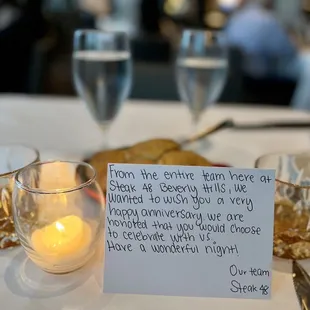 From the entire team here at
Steak 48 Beverly Hills, we
wanted to wish you a very
happy anniversary we are
honored that you would choose
to celebrate with us.
Have a wonderful night!
Our team
Steak 48